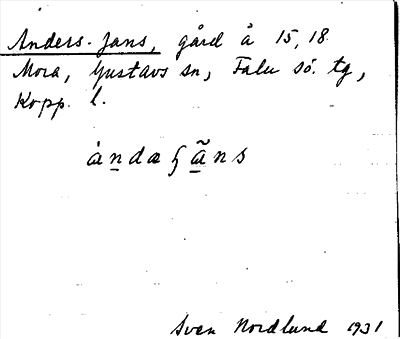 Anders-Jans, gård å 15,18
Mora, Gustavs sn, Falu sö. tg,
Kopp. l.
Sven Nordlund 1931